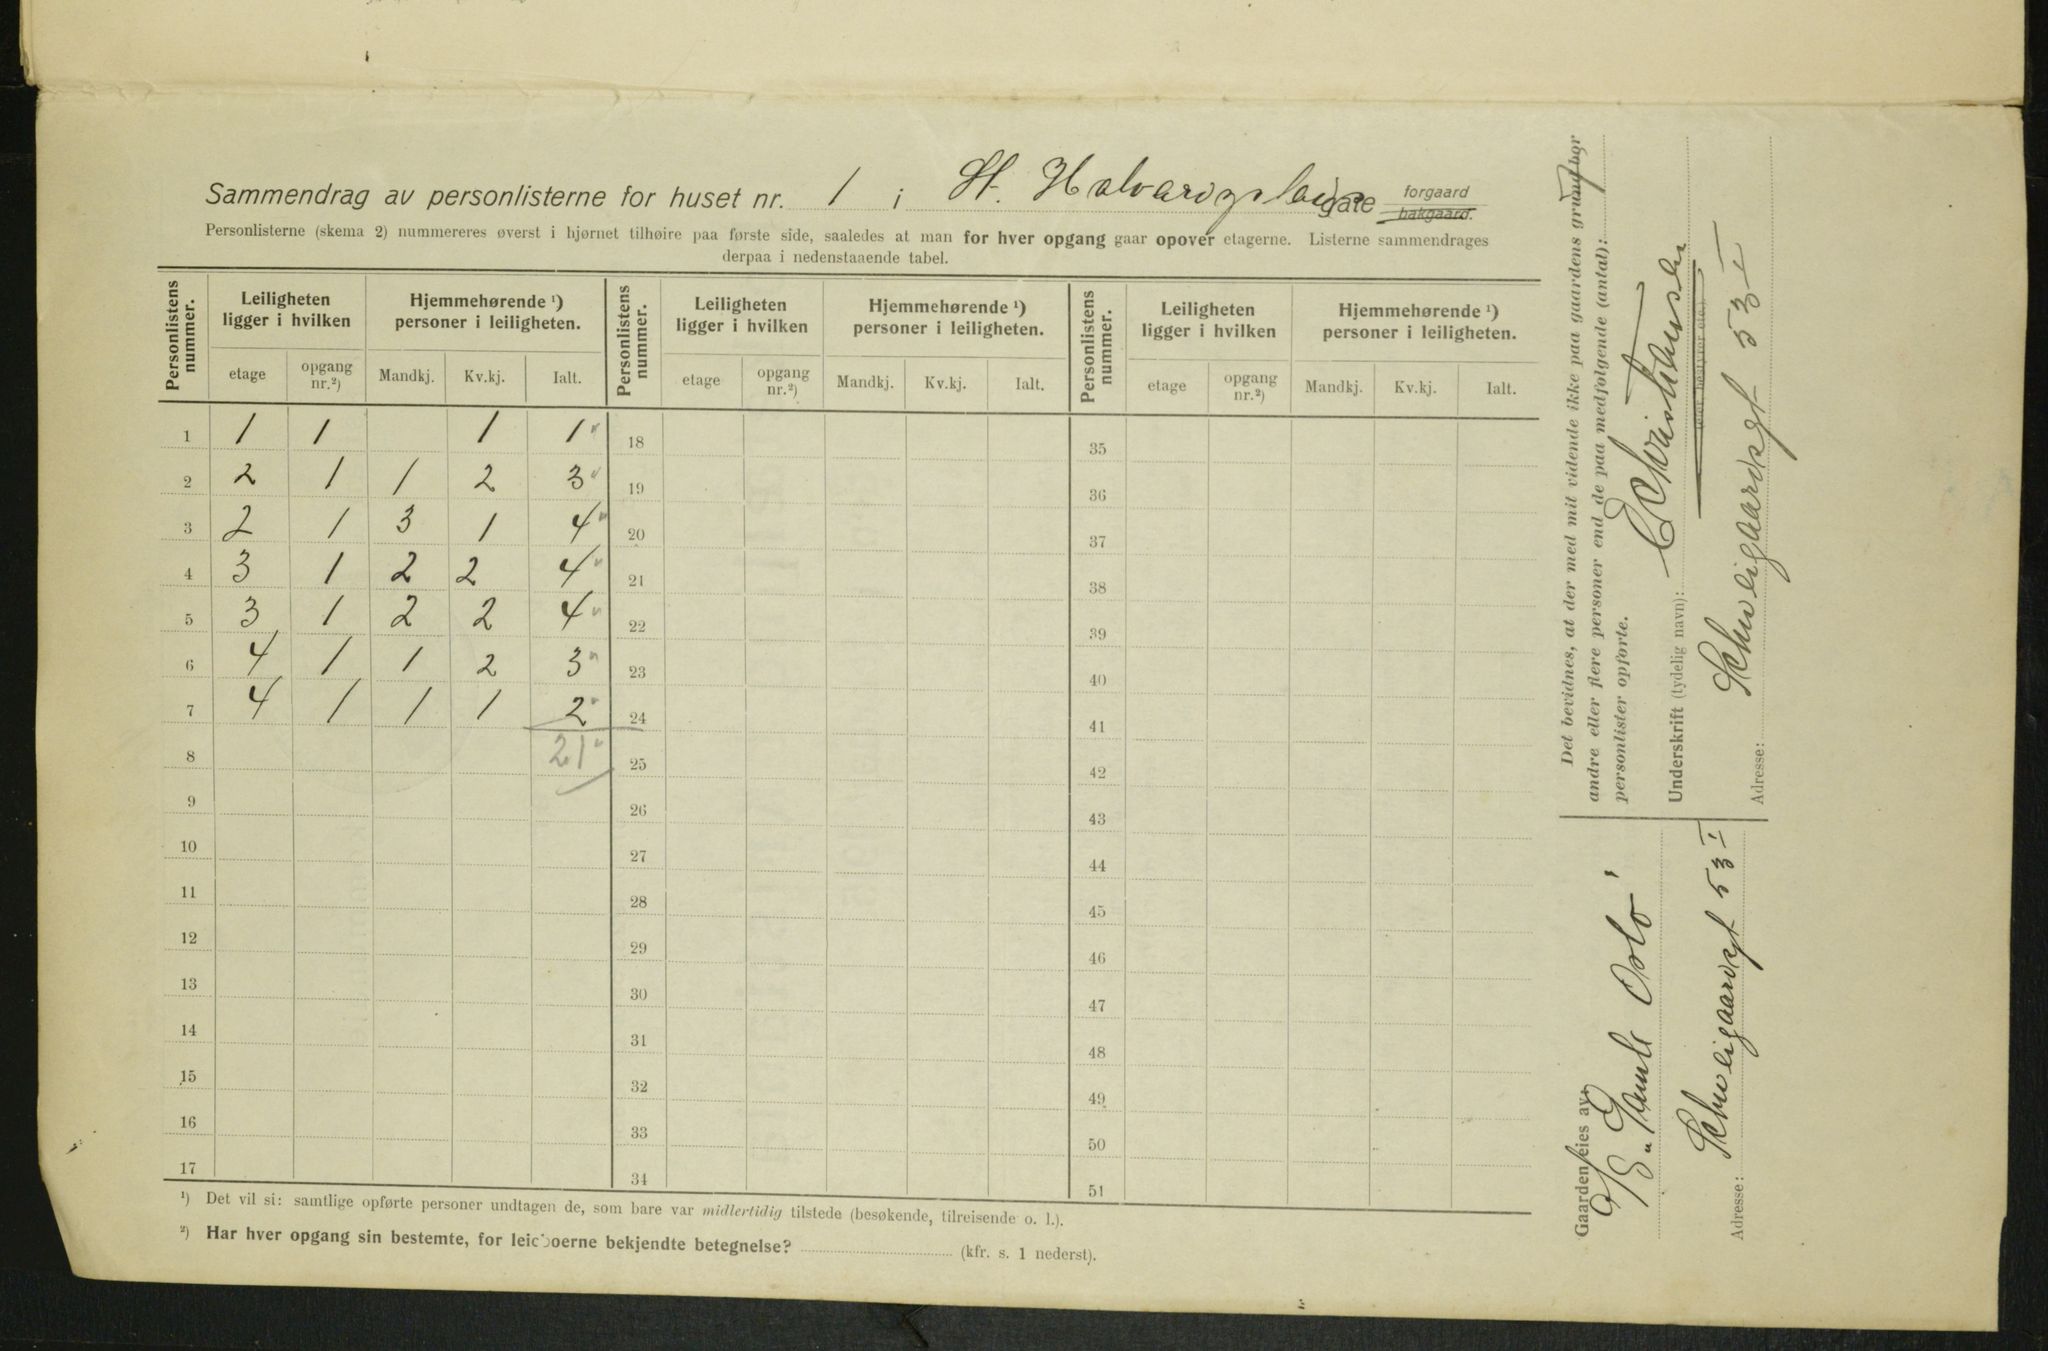 Sammendrag av personlisterne for huset nr. 1 i St. Halvardsplads gate forgaard bakgaard.
Personlisterne (skema 2) nummereres øverst i hjørnet tilhøire paa første side, saaledes at man for hver opgang gaar opover etagerne. Listerne sammendrages
derpaa i nedenstaaende tabel.
Personlistens nummer. Leiligheten ligger i hvilken Hjemmehørende ¹) personer i leiligheten. Personlistens nummer. Leiligheten ligger i hvilken Hjemmehørende ¹) personer i leiligheten. Personlistens nummer. Leiligheten ligger i hvilken Hjemmehørende ¹) personer i leiligheten.
etage opgang nr.²) Mandkj. Kv.kj. Ialt. etage opgang nr.²) Mandkj. Kv.kj. Ialt. etage opgang nr.²) Mandkj. Kv.kj. Ialt.
1 1 1 1 1 18 35
2 2 1 1 2 3 19 36
3 2 1 3 1 4 20 37
4 3 1 2 2 4 21 38
5 3 1 2 2 4 22 39
6 4 1 1 2 3 23 40
7 4 1 1 1 2 24 41
8 21 25 42
9 26 43
10 27 44
11 28 45
12 29 46
13 30 47
14 31 48
15 32 49
16 33 50
17 34 51
¹) Det vil si: samtlige opførte personer undtagen de, som bare var midlertidig tilstede (besøkende, tilreisende o. l.).
²) Har hver opgang sin bestemte, for leieboerne bekjendte betegnelse? (kfr. s. 1 nederst).
Det bevidnes, at der med mit vidende ikke paa gaardens grund bor
andre eller flere personer end de paa medfølgende (antal): 7
personlister opførte.
Underskrift (tydelig navn): E Christensen
(eier, bestyrer etc.)
Adresse: Schweigaardsgt 53 I
Gaarden eies av:
"Gamle Oslo"
Adresse: Schweigaardsgt 53 I